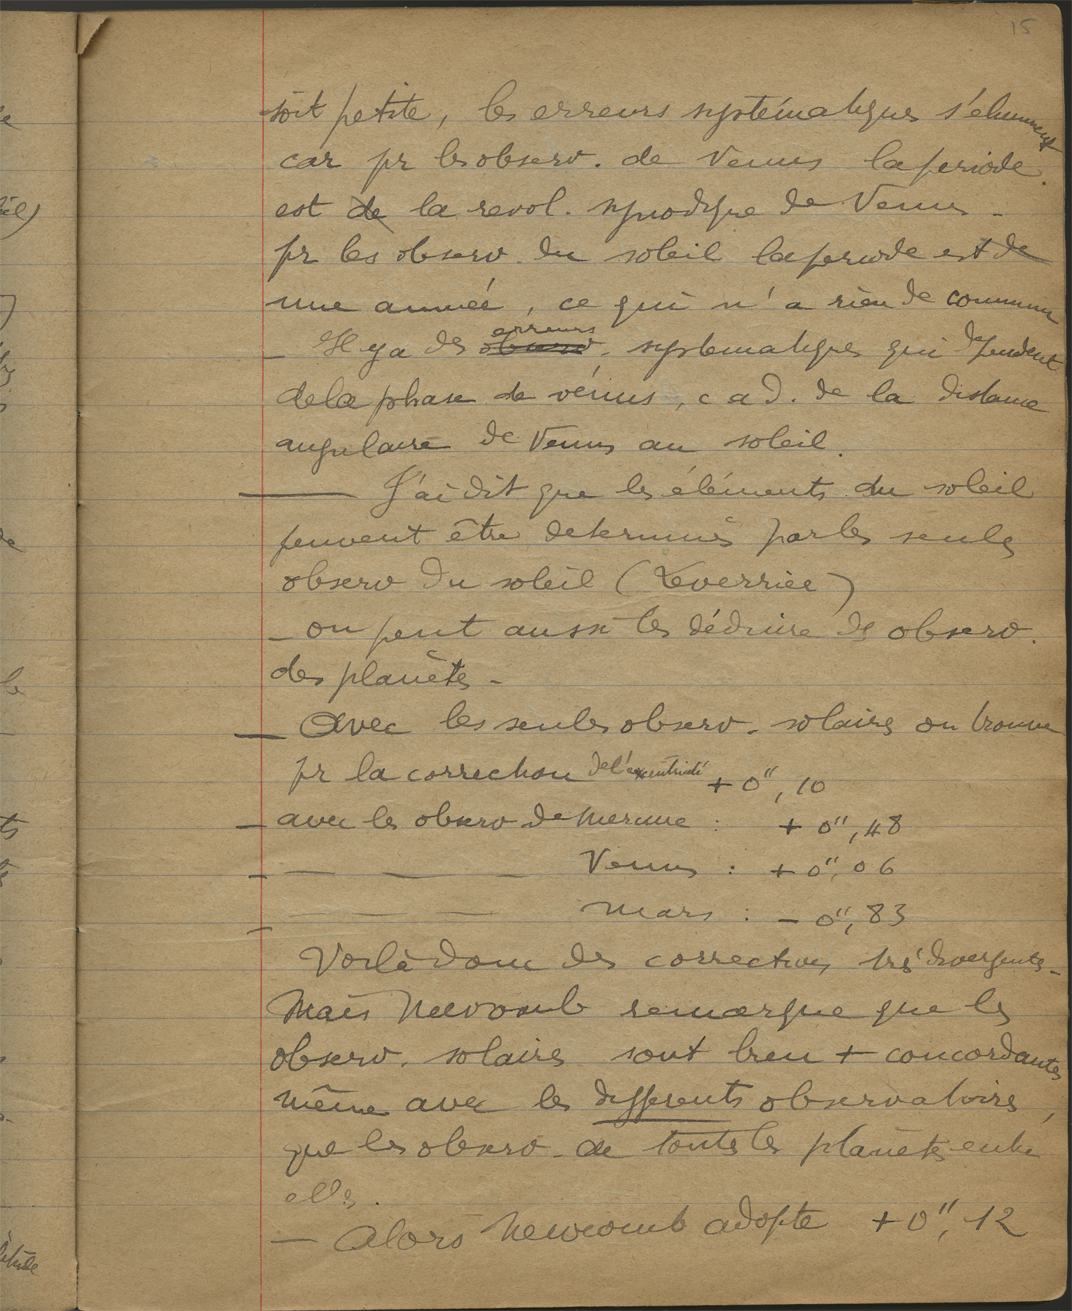 15
soit petite, les erreurs systématiques s'éliminent
car pr les observ. de Venus la periode
est de la revol. synodique de Venus -
pr les observ. du soleil la periode est de
une année, ce qui n'a rien de commun
- Il y a des observ. erreurs systematiques qui dependent
de la phase de vénus, c a d. de la distance
angulaire de Venus au soleil.
— J'ai dit que les éléments du soleil
peuvent être determinés par les seules
observ du soleil (Leverrier)
- on peut aussi les déduire des observ.
des planètes -
- Avec les seules observ. solaires on trouve
pr la correction de l'excentricité +0", 10
- avec les observ de Mercure : + 0", 48
- — — — Venus : + 0", 06
- — — — Mars : - 0", 83
Voilà donc des corrections très divergentes -
Mais Newcomb remarque que les
observ. solaires sont bien + concordantes
même avec les differents observatoires,
que les observ. de toutes les planètes entre
elles.
- Alors Newcomb adopte +0", 12